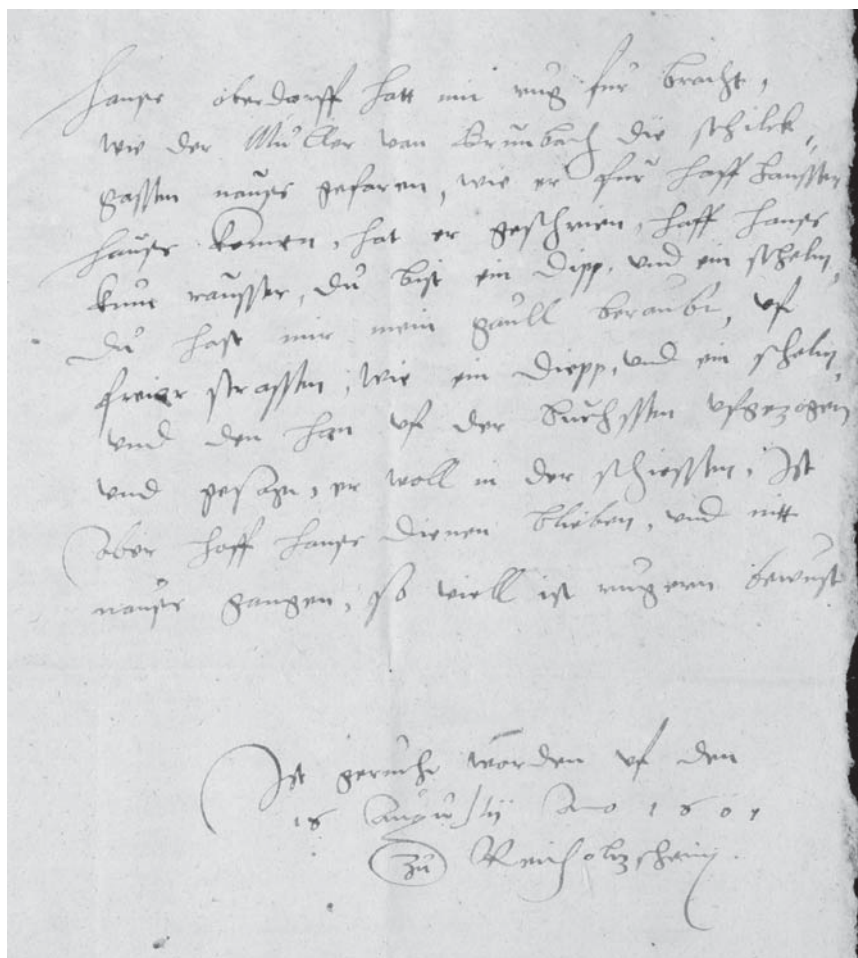 Hanss oberdorff hatt ein rug fur bracht,
wie der Müller von Brunbach die schilck
gassen nauss gefaren, wie er für Hoff Hanssen
hauss komen, hat er geschrien, Hoff Hanss
kum rausser, Du bist ein Dipp, und ein schelm,
Du hast mir mein gaull beraubt, uf
freier strassen, wie ein Diepp, und ein schelm,
und den han uf der buchssen ufgezogen
und gesagt, er woll in der schiessen, Ist
aber Hoff Hanss Dinen blieben, und nitt
nauss gangen, so viell ist rugern bewust
Ist gerucht worden uf den
18 Augustij Ano 1601
zu Reicholtzheim.